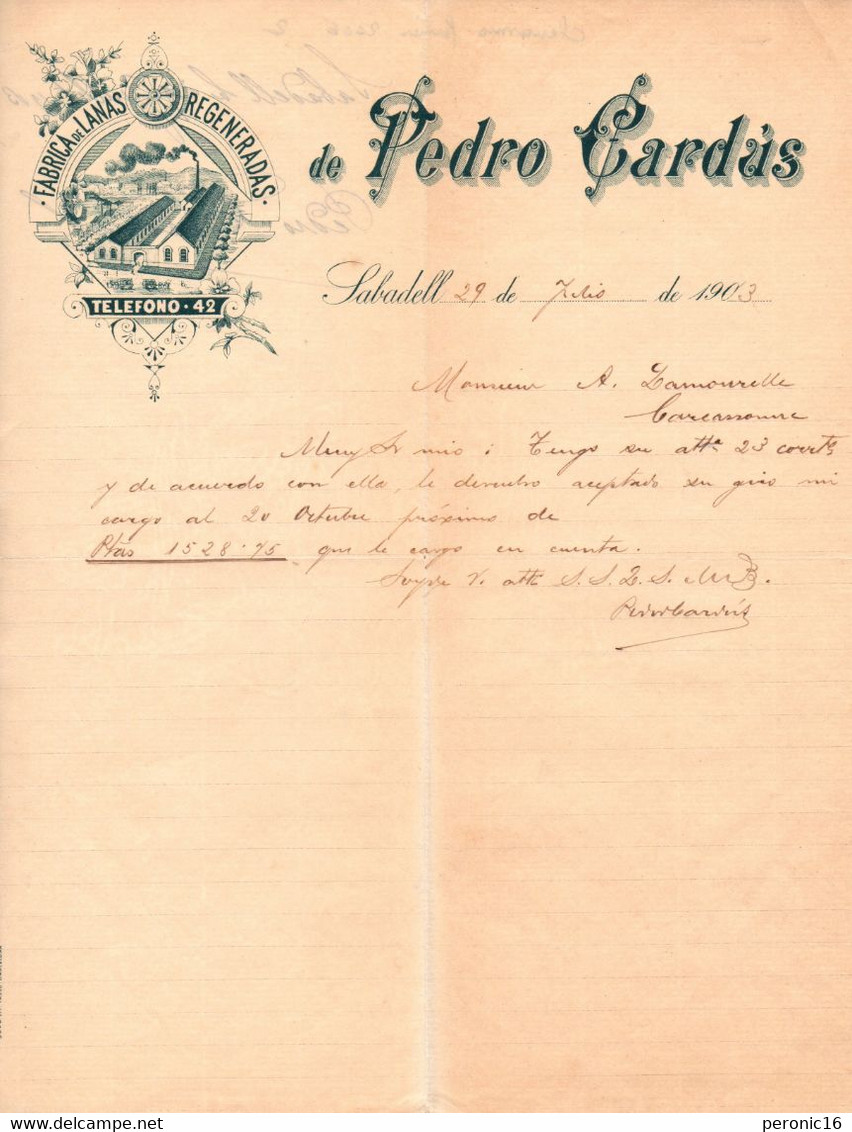 FABRICA DE LANAS REGENERADAS
TELEFONO · 42
de Pedro Cardús
Sabadell 29 de Julio de 1903
Monsieur A. Lamourelle
Carcassonne
Muy Sr mio: Tengo su atta 23 corrte
y de acuerdo con ella, le devuelvo aceptado su giro mi
cargo al 20 Octubre próximo de
Ptas 1528·75 que le cargo en cuenta.
Soy de V. atto S. S. Q. S. M. B.
Pedro Cardús
delcampe.net
peronic16